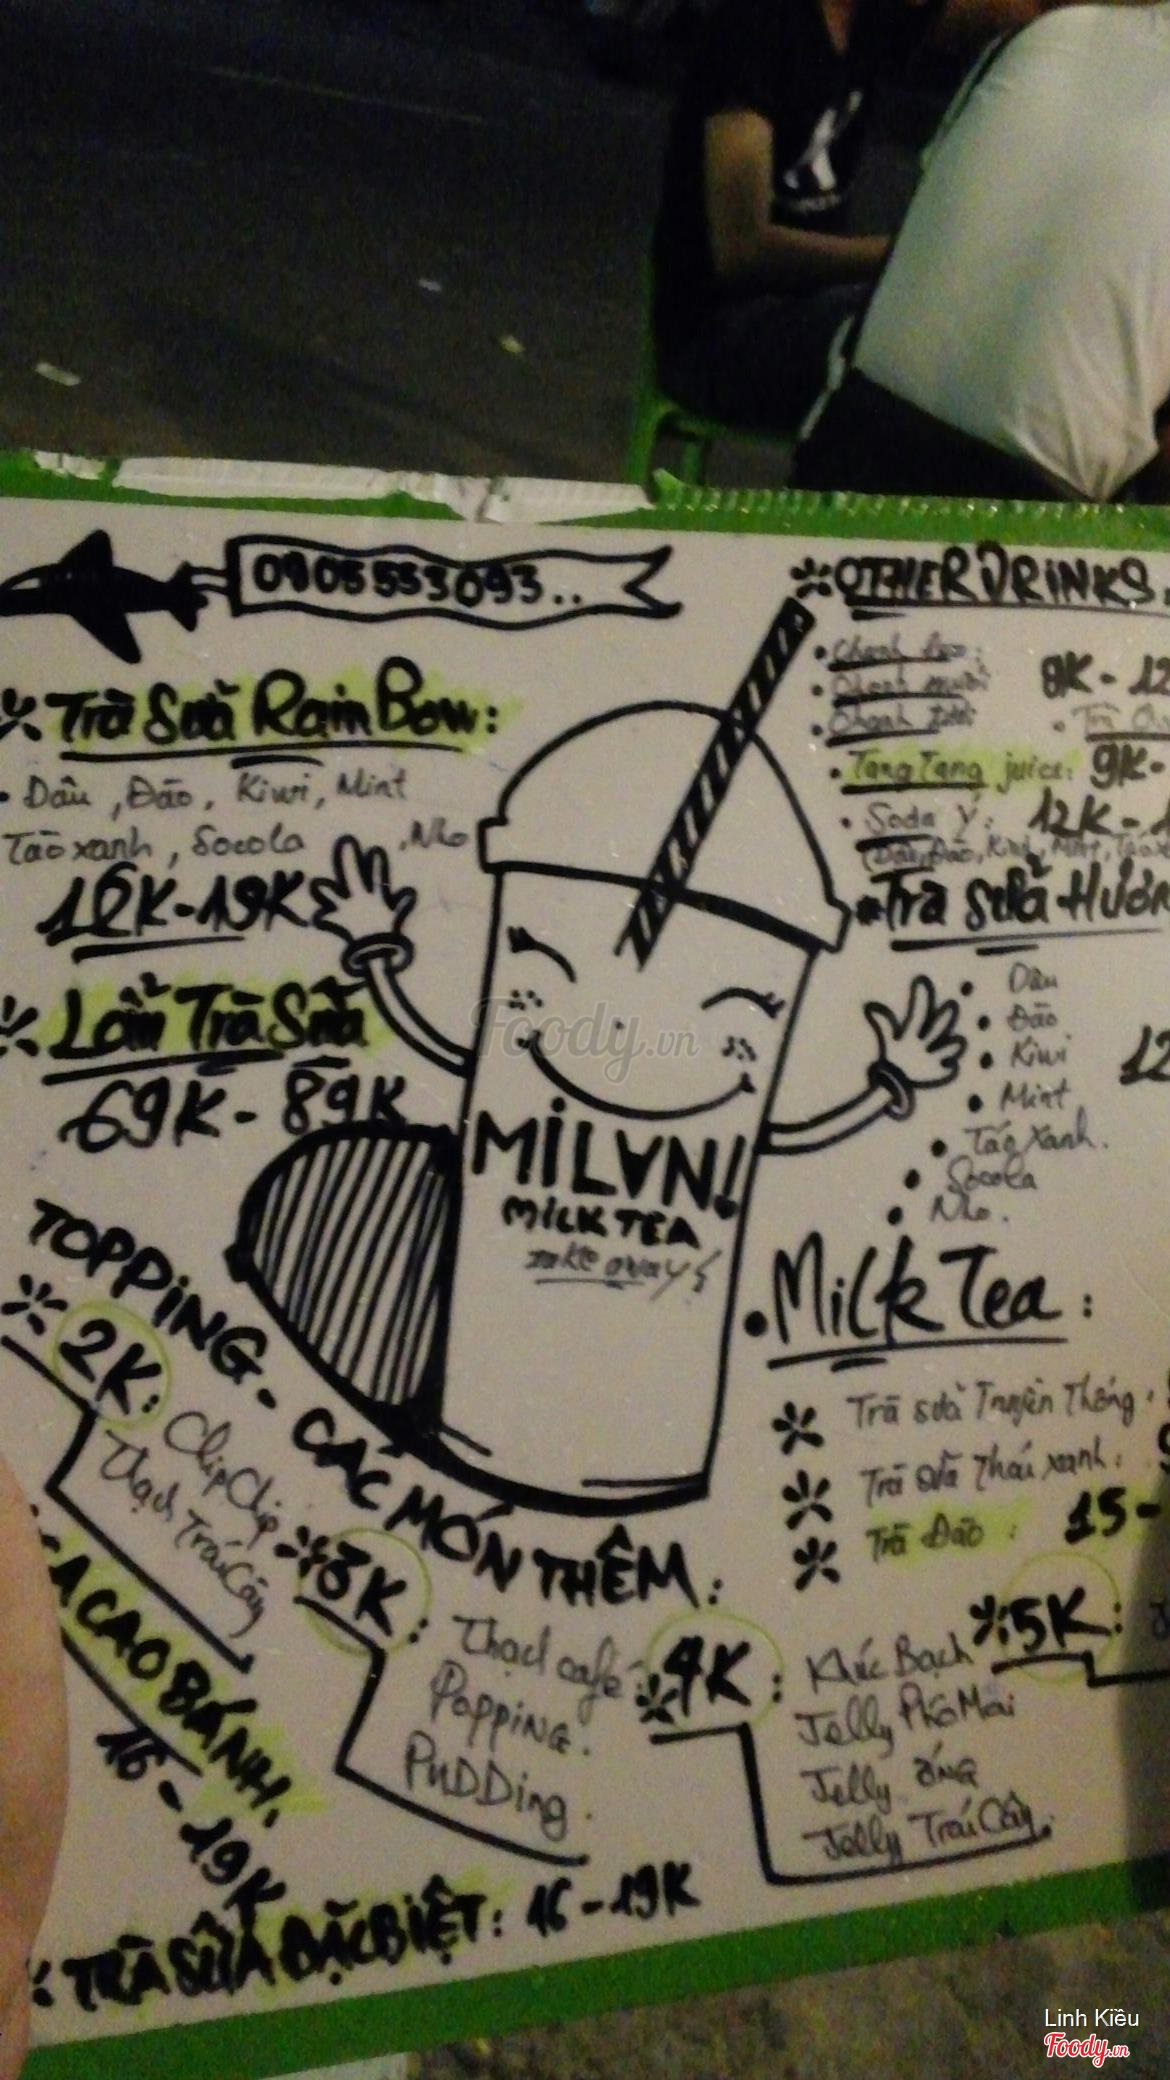 0905553093..
Trà Sữa RainBow:
Dâu, Đào, Kiwi, Mint
Táo xanh, Socola, Nho
16K-19K
Lẩu Trà Sữa
69K - 89K
OTHER DRINKS
Chanh
Chanh muối 9K - 12
Chanh tươi
Trà
TangTang juice: 9K-
Soda Ý: 12K -
(Dâu, Đào, Kiwi, Mint, Táo
Trà sữa Hươn
Dâu
Đào
Kiwi
Mint
Táo Xanh.
Socola
Nho.
12
MILVN!
MILK TEA
take away
Milk Tea:
Trà sữa Truyền Thống:
Trà sữa thái xanh:
Trà Đào: 15-
TOPPING - CÁC MÓN THÊM:
2K:
ClipClip
Thạch Trái Cây
3K:
Thạch café
POPPING.
PUDDing.
4K:
Khúc Bạch
Jelly Phô Mai
Jelly ống
Jelly Trái Cây.
5K:
A CAO BÁNH:
16 - 19K
TRÀ SỮA ĐẶC BIỆT: 16 - 19K
Foody.vn
Linh Kiều
Foody.vn